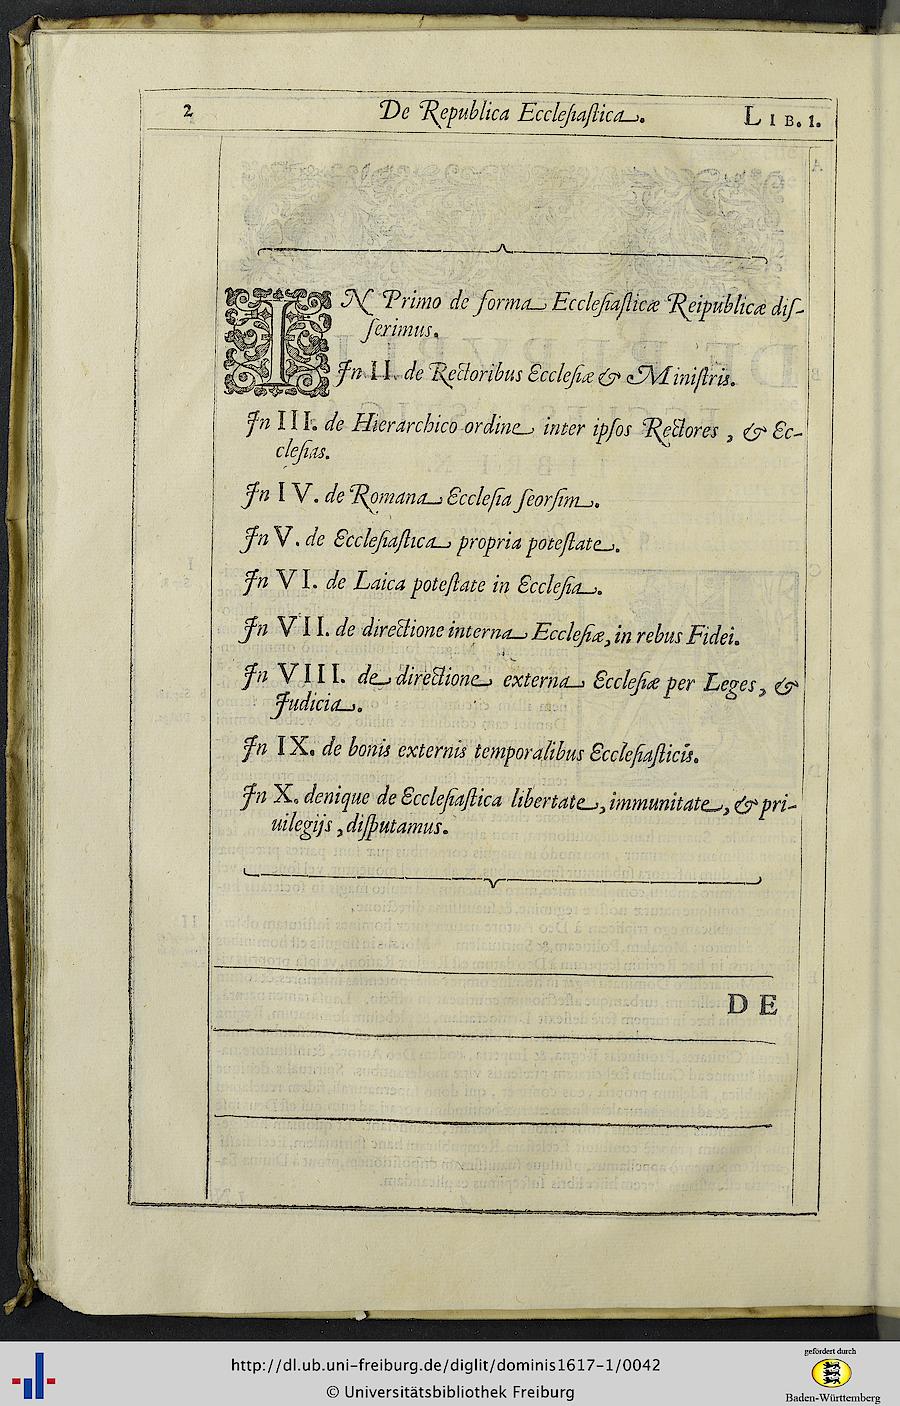 2 De Republica Ecclesiastica. LIB. 1.
IN Primo de forma Ecclesiasticæ Reipublicæ dis-
serimus.
In II. de Rectoribus Ecclesiæ & Ministris.
In III. de Hierarchico ordine inter ipsos Rectores, & Ec-
clesias.
In IV. de Romana Ecclesia seorsim.
In V. de Ecclesiastica propria potestate.
In VI. de Laica potestate in Ecclesia.
In VII. de directione interna Ecclesiæ, in rebus Fidei.
In VIII. de directione externa Ecclesiæ per Leges, &
Judicia.
In IX. de bonis externis temporalibus Ecclesiasticis.
In X. denique de Ecclesiastica libertate, immunitate, & pri-
uilegijs, disputamus.
DE
http://dl.ub.uni-freiburg.de/diglit/dominis1617-1/0042
© Universitätsbibliothek Freiburg
gefördert durch
Baden-Württemberg